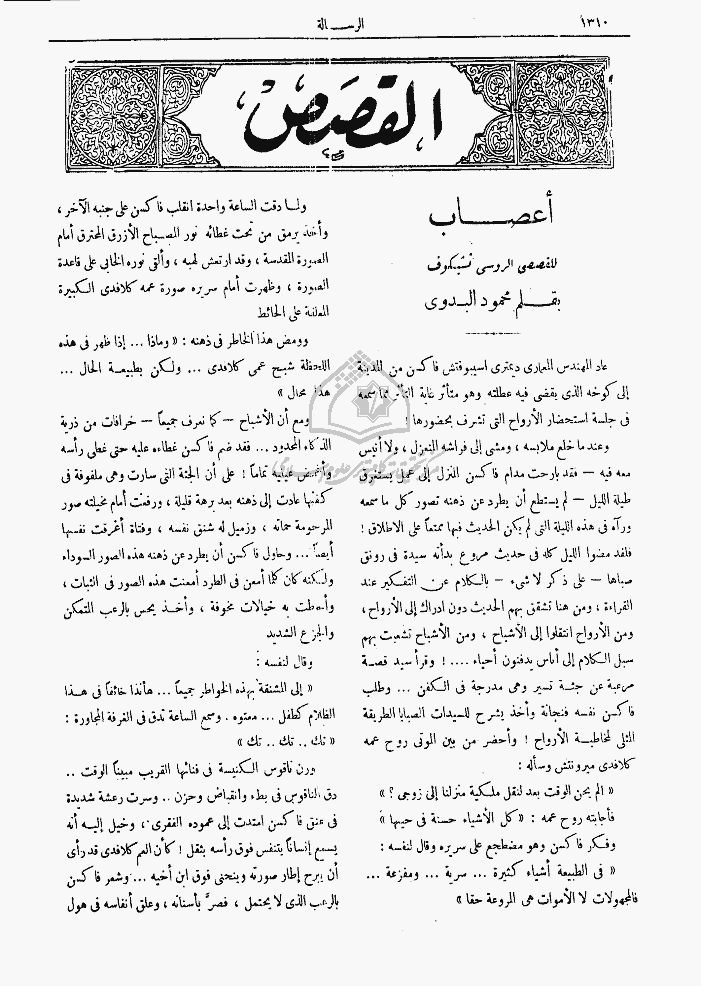 ١٣١٠
الرسالة
القصص
أعصاب
للقصصى الروسى تشيكوف
بقلم محمود البدوى
عاد المهندس المعمارى ديمترى اسيبوفتش فاكسن من المدينة
إلى كوخه الذى يقضى فيه عطلته وهو متأثر غاية التأثر مما سمعه
فى جلسة استحضار الأرواح التى تشرف بحضورها !
وعندما خلع ملابسه ، ومشى إلى فراشه المنعزل ، ولا أنيس
معه فيه — فقد بارحت مدام فاكسن المنزل إلى عمل يستغرق
طيلة الليل — لم يستطع أن يطرد عن ذهنه تصور كل ما سمعه
ورآه فى هذه الليلة التى لم يكن الحديث فيها ممتعاً على الاطلاق !
فلقد مضوا الليل كله فى حديث مروع بدأته سيدة فى رونق
صباها — على ذكر لا شىء — بالكلام عن التفكير عند
القراءة ، ومن هنا تشقق بهم الحديث دون ادراك إلى الأرواح ،
ومن الأرواح انتقلوا إلى الأشباح ، ومن الأشباح تشعبت بهم
سبل الكلام إلى أناس يدفنون أحياء .... ! وقرأ سيد قصة
مرعبة عن جثة تسير وهى مدرجة فى الكفن ... وطلب
فاكسن نفسه فنجانة وأخذ يشرح للسيدات الصبايا الطريقة
المثلى لمخاطبة الأرواح ! وأحضر من بين الموتى روح عمه
كلافدى ميرونتش وسأله :
« الم يحن الوقت بعد لنقل ملكية منزلنا إلى زوجى ؟ »
فأجابته روح عمه : « كل الأشياء حسنة فى حينها »
وفكر فاكسن وهو مضطجع على سريره وقال لنفسه :
« فى الطبيعة أشياء كثيرة ... سرية ... ومفزعة ...
فالمجهولات لا الأموات هى المروعة حقا »
ولما دقت الساعة واحدة انقلب فاكسن على جنبه الآخر ،
وأخذ يرمق من تحت غطائه نور المصباح الأزرق المحترق أمام
الصورة المقدسة ، وقد ارتعش لهبه ، وألقى نوره الخابى على قاعدة
الصورة ، وظهرت أمام سريره صورة عمه كلافدى الكبيرة
المعلقة على الحائط
وومض هذا الخاطر فى ذهنه : « وماذا ... إذا ظهر فى هذه
اللحظة شبح عمى كلافدى ... ولكن بطبيعة الحال ...
هذا محال »
ومع أن الأشباح — كما نعرف جميعاً — خرافات من ذرية
الذكاء المحدود ... فقد ضم فاكسن غطاءه عليه حتى غطى رأسه
وأغمض عينيه تماماً ! على أن الجثة التى سارت وهى ملفوفة فى
كفنها عادت إلى ذهنه بعد برهة قليلة ، ورفعت أمام مخيلته صور
المرحومة حماته ، وزميل له شنق نفسه ، وفتاة أغرقت نفسها
أيضاً ... وحاول فاكسن أن يطرد عن ذهنه هذه الصور السوداء
ولكنه كان كلما أمعن فى الطرد أمعنت هذه الصور فى الثبات ،
وأحاطت به خيالات مخوفة ، وأخذ يحس بالرعب المتمكن
والجزع الشديد
وقال لنفسه :
« إلى المشنقة بهذه الخواطر جميعاً ... هأنذا خائفا فى هذا
الظلام كطفل ... معتوه . وسمع الساعة تدق فى الغرفة المجاورة :
« تك .. تك .. تك »
ورن ناقوس الكنيسة فى فنائها القريب مبيناً الوقت ..
دق الناقوس فى بطء وانقباض وحزن .. وسرت رعشة شديدة
فى عنق فاكسن امتدت إلى عموده الفقرى ، وخيل إليه أنه
يسمع إنساناً يتنفس فوق رأسه بثقل ! كأن العم كلافدى قد رأى
أن يبرح إطار صورته وينحنى فوق ابن أخيه ... وشعر فاكسن
بالرعب الذى لا يحتمل ، فصرَّ بأسنانه ، وعلق أنفاسه فى هول